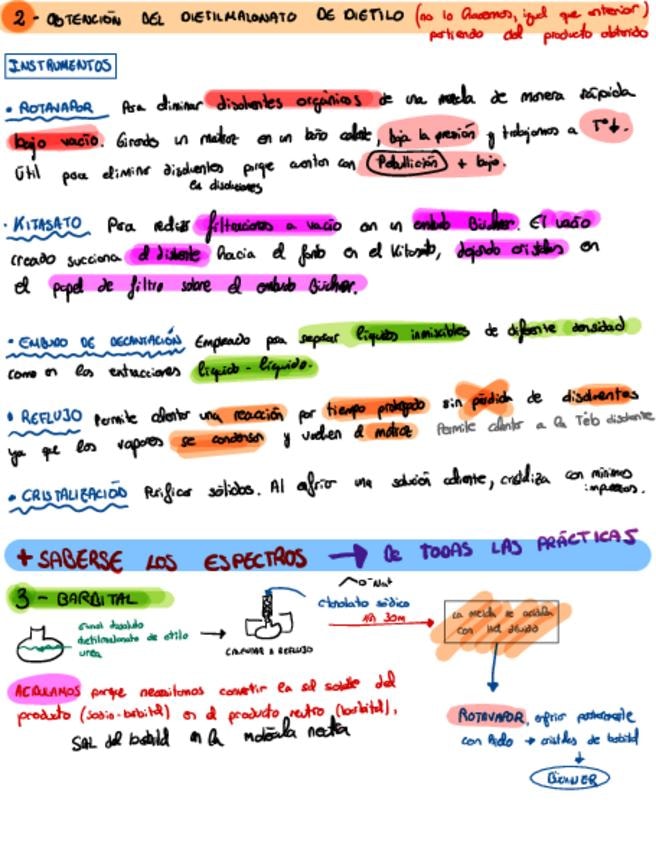 2 - OBTENCIÓN DEL DIETILMALONATO DE DIETILO (no lo hacemos, igual que anterior)
partiendo del producto obtenido
INSTRUMENTOS
• ROTAVAPOR Para eliminar disolventes orgánicos de una mezcla de manera rápida
bajo vacío. Girando un matraz en un baño caliente, baja la presión y trabajamos a Tª↓.
Útil para eliminar disolventes porque cuentan con Pebullición + bajo.
en disoluciones
• KITASATO Para realizar filtraciones a vacío con un embudo Büchner. El vacío
creado succiona el disolvente hacia el fondo en el Kitasato, dejando cristales en
el papel de filtro sobre el embudo Büchner.
• EMBUDO DE DECANTACIÓN Empleado para separar líquidos inmiscibles de diferente densidad
como en las extracciones líquido-líquido.
• REFLUJO Permite calentar una reacción por tiempo prolongado sin pérdida de disolventes
ya que los vapores se condensan y vuelven al matraz Permite calentar a la Teb disolvente
• CRISTALIZACIÓN Purificar sólidos. Al enfriar una solución caliente, cristaliza con mínimas
impurezas.
+ SABERSE LOS ESPECTROS → DE TODAS LAS PRÁCTICAS
3 - BARBITAL
O⁻Na⁺
dietilmalonato de etilo
urea
→
CALENTAR A REFLUJO
etanolato sódico
1h 30m
La mezcla se acidifica
con HCl diluido
ACIDULAMOS porque necesitamos convertir la sal soluble del
producto (sodio-barbital) en el producto neutro (barbital),
SAL del barbital en la molécula neutra
ROTAVAPOR, enfriar posteriormente
con hielo → cristales de barbital
BÜCHNER